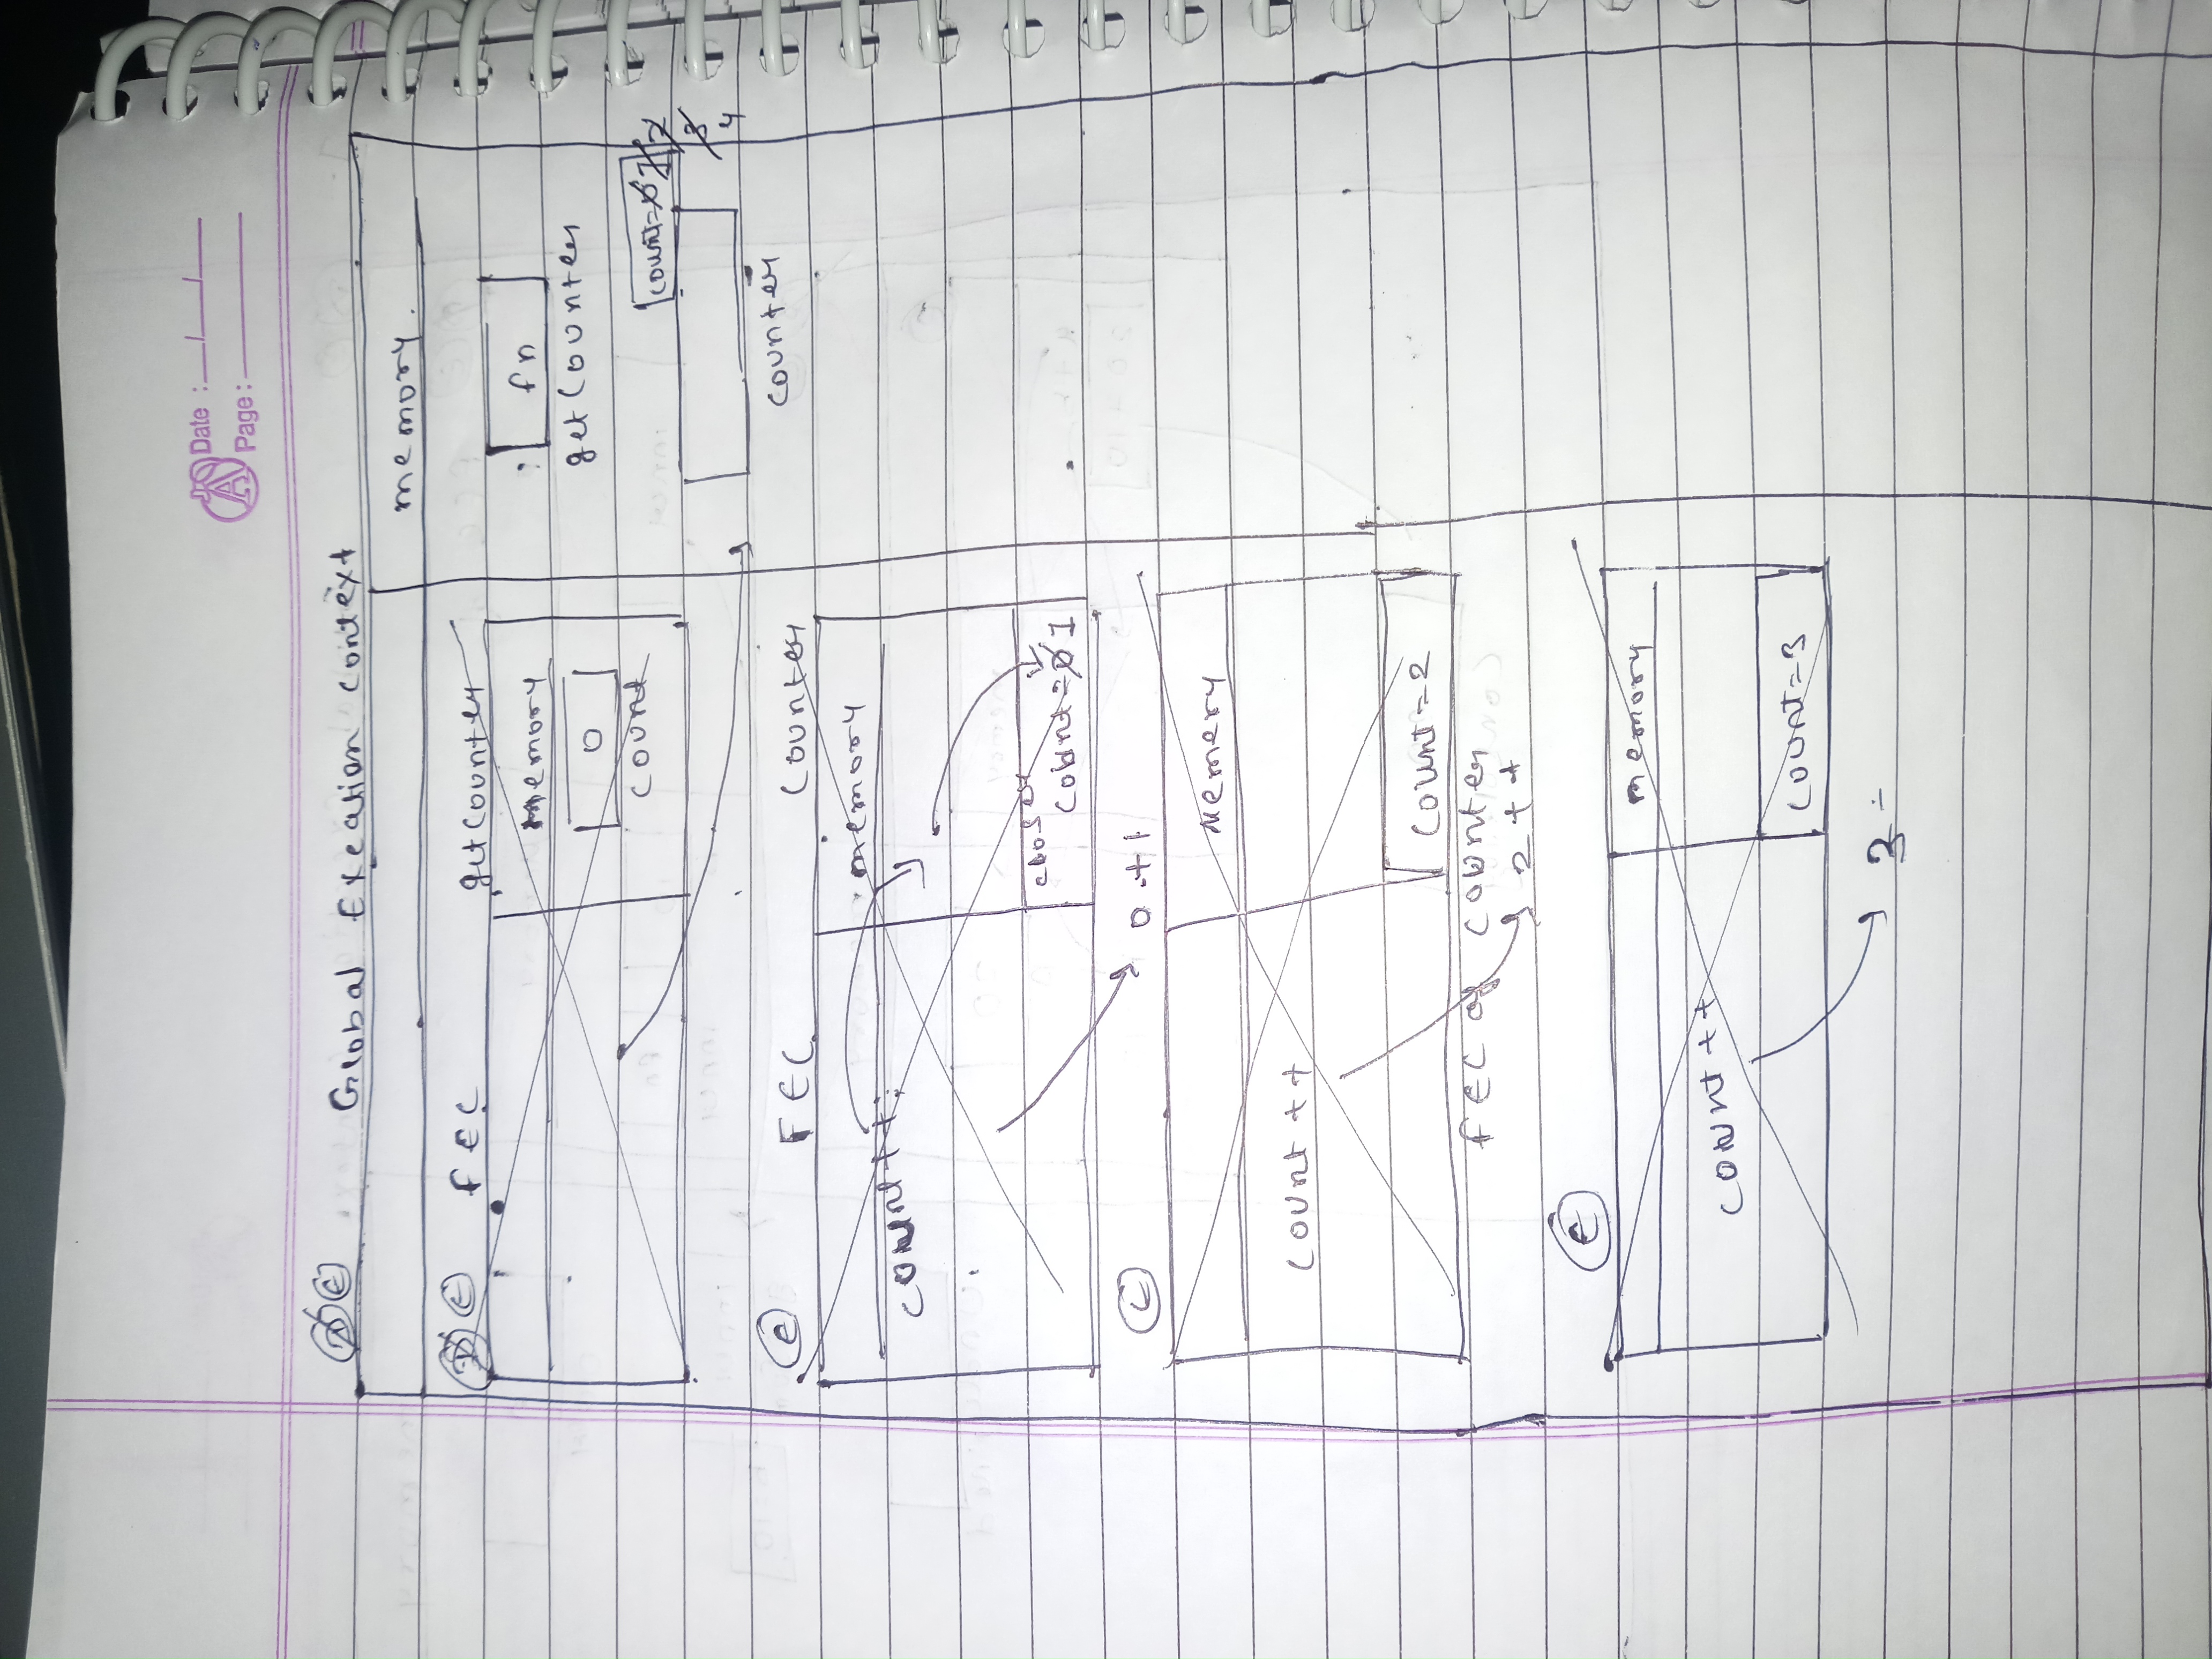 Date :
Page :
D E Global Exeation context
memory.
D E FEC getCounter
memory
fn
0
getCounter
count
count=0 1 2
3
4
counter
E FEC Counter
memory
count++;
closer
count=0 1
0 + 1
E
Memery
count ++
count=2
FEC of counter
2 + +
E
memory
count ++
count=3
3 =